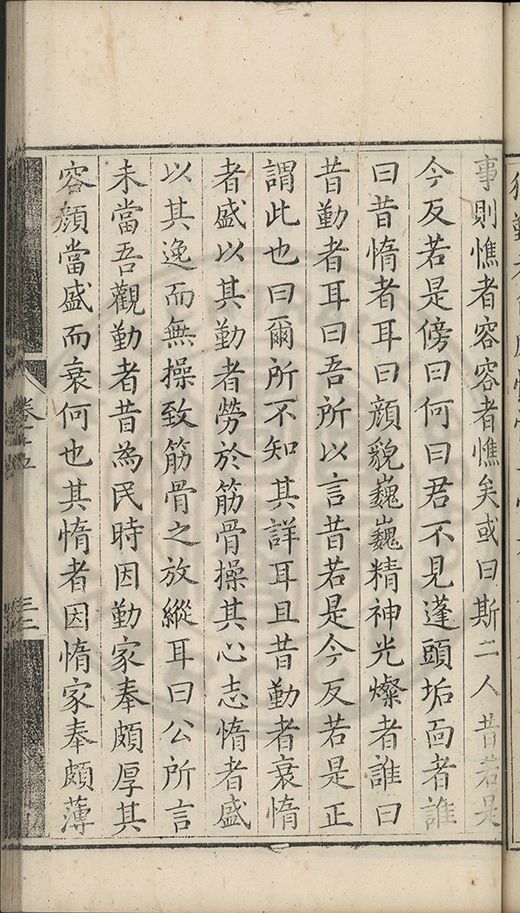 事則憔者容容者憔矣或曰斯二人昔若是
今反若是傍曰何曰君不見蓬頭垢面者誰
曰昔惰者耳曰顔貌巍巍精神光燦者誰曰
昔勤者耳曰吾所以言昔若是今反若是正
謂此也曰爾所不知其詳耳且昔勤者衰惰
者盛以其勤者勞於筋骨操其心志惰者盛
以其逸而無操致筋骨之放縱耳曰公所言
未當吾觀勤者昔為民時因勤家奉頗厚其
容顔當盛而衰何也其惰者因惰家奉頗薄
卷十五
三十二